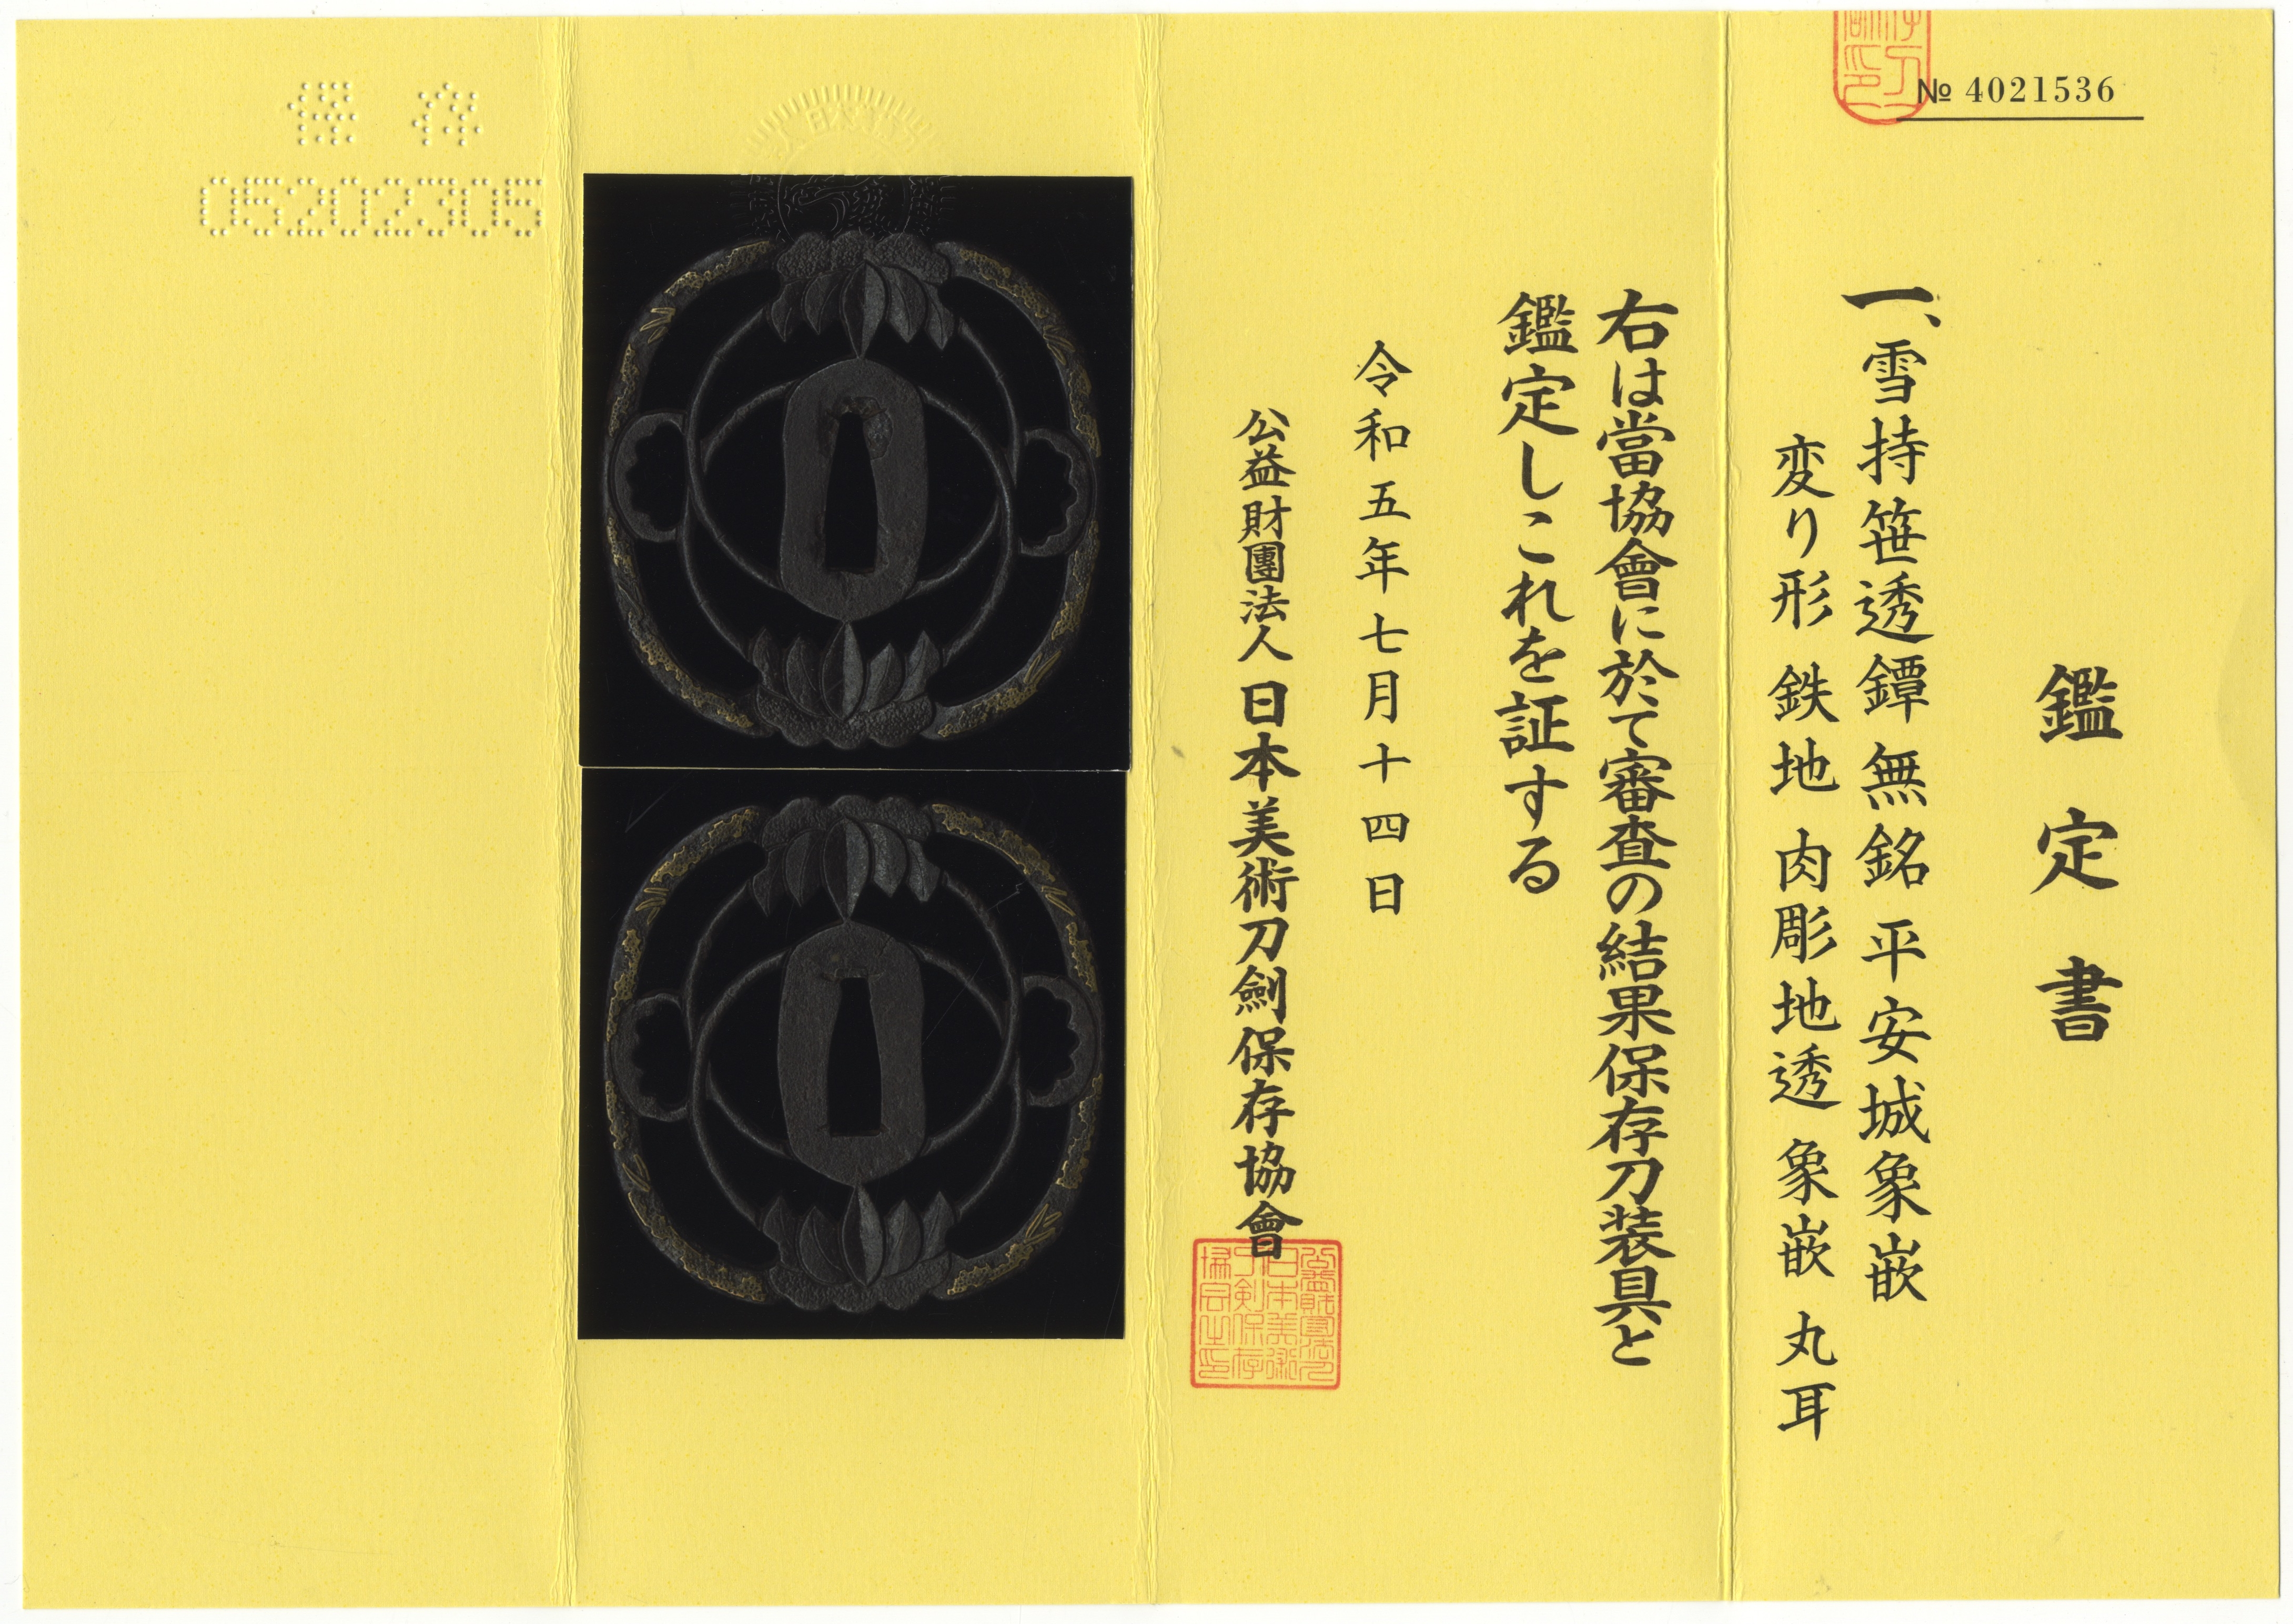 № 4021536
鑑定書
一、雪持笹透鐔 無銘 平安城象嵌
変り形 鉄地 肉彫地透 象嵌 丸耳
右は當協會に於て審査の結果保存刀装具と
鑑定しこれを証する
令和五年七月十四日
公益財團法人 日本美術刀劍保存協會
保存
05202305